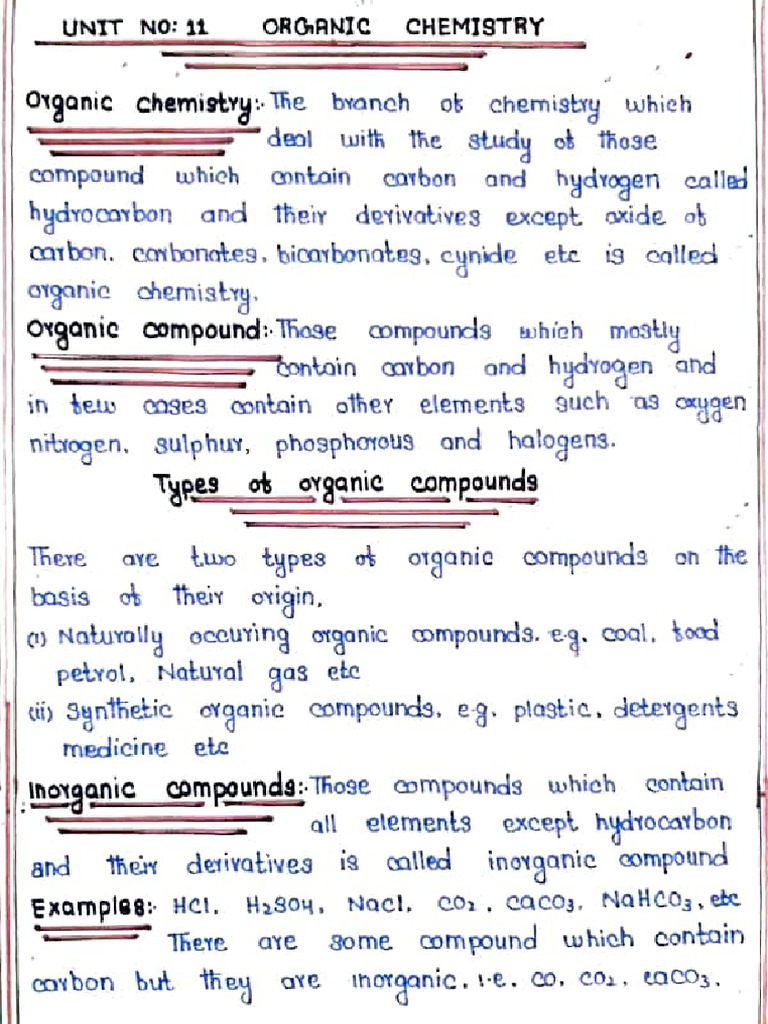 UNIT NO: 11 ORGANIC CHEMISTRY
Organic chemistry:- The branch of chemistry which
deal with the study of those
compound which contain carbon and hydrogen called
hydrocarbon and their derivatives except oxide of
carbon, carbonates, bicarbonates, cynide etc is called
organic chemistry.
Organic compound:- Those compounds which mostly
contain carbon and hydrogen and
in few cases contain other elements such as oxygen
nitrogen, sulphur, phosphorous and halogens.
Types of organic compounds
There are two types of organic compounds on the
basis of their origin,
(i) Naturally occuring organic compounds. e.g. coal, food
petrol, Natural gas etc
(ii) Synthetic organic compounds, e.g. plastic, detergents
medicine etc
Inorganic compounds:- Those compounds which contain
all elements except hydrocarbon
and their derivatives is called inorganic compound
Examples:- HCl, H2SO4, NaCl, CO2, CaCO3, NaHCO3, etc
There are some compound which contain
carbon but they are inorganic, i.e. CO, CO2, CaCO3,